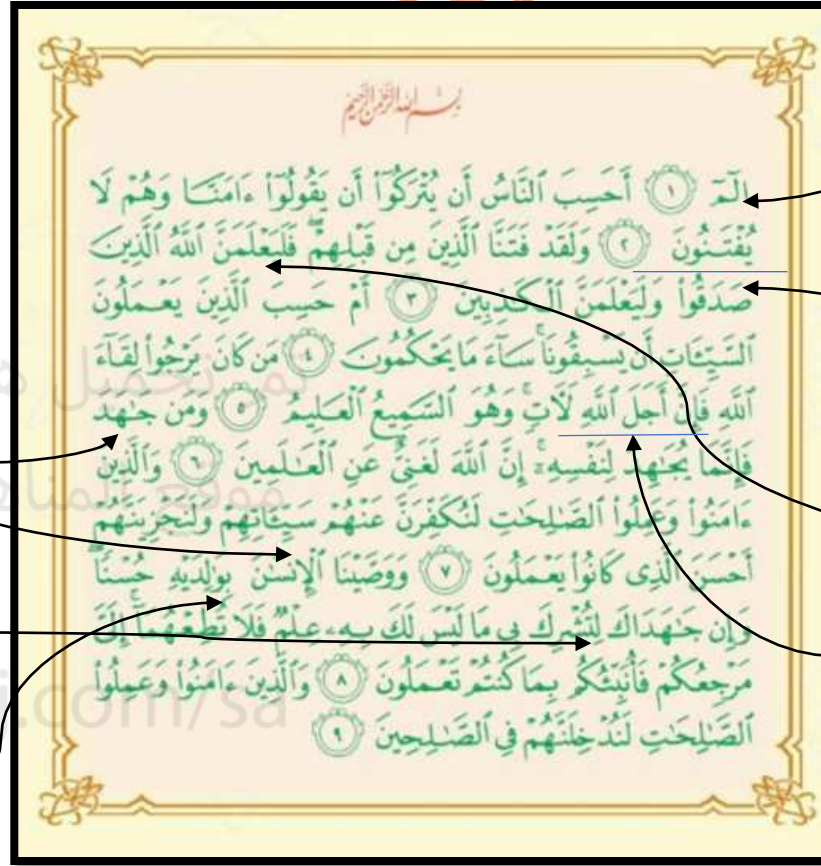 بِسْمِ اللَّهِ الرَّحْمَٰنِ الرَّحِيمِ
الٓمٓ ١ أَحَسِبَ ٱلنَّاسُ أَن يُتْرَكُوٓا۟ أَن يَقُولُوٓا۟ ءَامَنَّا وَهُمْ لَا
يُفْتَنُونَ ٢ وَلَقَدْ فَتَنَّا ٱلَّذِينَ مِن قَبْلِهِمْ ۖ فَلَيَعْلَمَنَّ ٱللَّهُ ٱلَّذِينَ
صَدَقُوا۟ وَلَيَعْلَمَنَّ ٱلْكَٰذِبِينَ ٣ أَمْ حَسِبَ ٱلَّذِينَ يَعْمَلُونَ
ٱلسَّيِّـَٔاتِ أَن يَسْبِقُونَا ۚ سَآءَ مَا يَحْكُمُونَ ٤ مَن كَانَ يَرْجُوا۟ لِقَآءَ
ٱللَّهِ فَإِنَّ أَجَلَ ٱللَّهِ لَـَٔاتٍ ۚ وَهُوَ ٱلسَّمِيعُ ٱلْعَلِيمُ ٥ وَمَن جَٰهَدَ
فَإِنَّمَا يُجَٰهِدُ لِنَفْسِهِۦٓ ۚ إِنَّ ٱللَّهَ لَغَنِىٌّ عَنِ ٱلْعَٰلَمِينَ ٦ وَٱلَّذِينَ
ءَامَنُوا۟ وَعَمِلُوا۟ ٱلصَّٰلِحَٰتِ لَنُكَفِّرَنَّ عَنْهُمْ سَيِّـَٔاتِهِمْ وَلَنَجْزِيَنَّهُمْ
أَحْسَنَ ٱلَّذِى كَانُوا۟ يَعْمَلُونَ ٧ وَوَصَّيْنَا ٱلْإِنسَٰنَ بِوَٰلِدَيْهِ حُسْنًا ۖ
وَإِن جَٰهَدَاكَ لِتُشْرِكَ بِى مَا لَيْسَ لَكَ بِهِۦ عِلْمٌ فَلَا تُطِعْهُمَآ ۚ إِلَىَّ
مَرْجِعُكُمْ فَأُنَبِّئُكُم بِمَا كُنتُمْ تَعْمَلُونَ ٨ وَٱلَّذِينَ ءَامَنُوا۟ وَعَمِلُوا۟
ٱلصَّٰلِحَٰتِ لَنُدْخِلَنَّهُمْ فِى ٱلصَّٰلِحِينَ ٩
تم تحميل
موقع المناه
i.com/sa